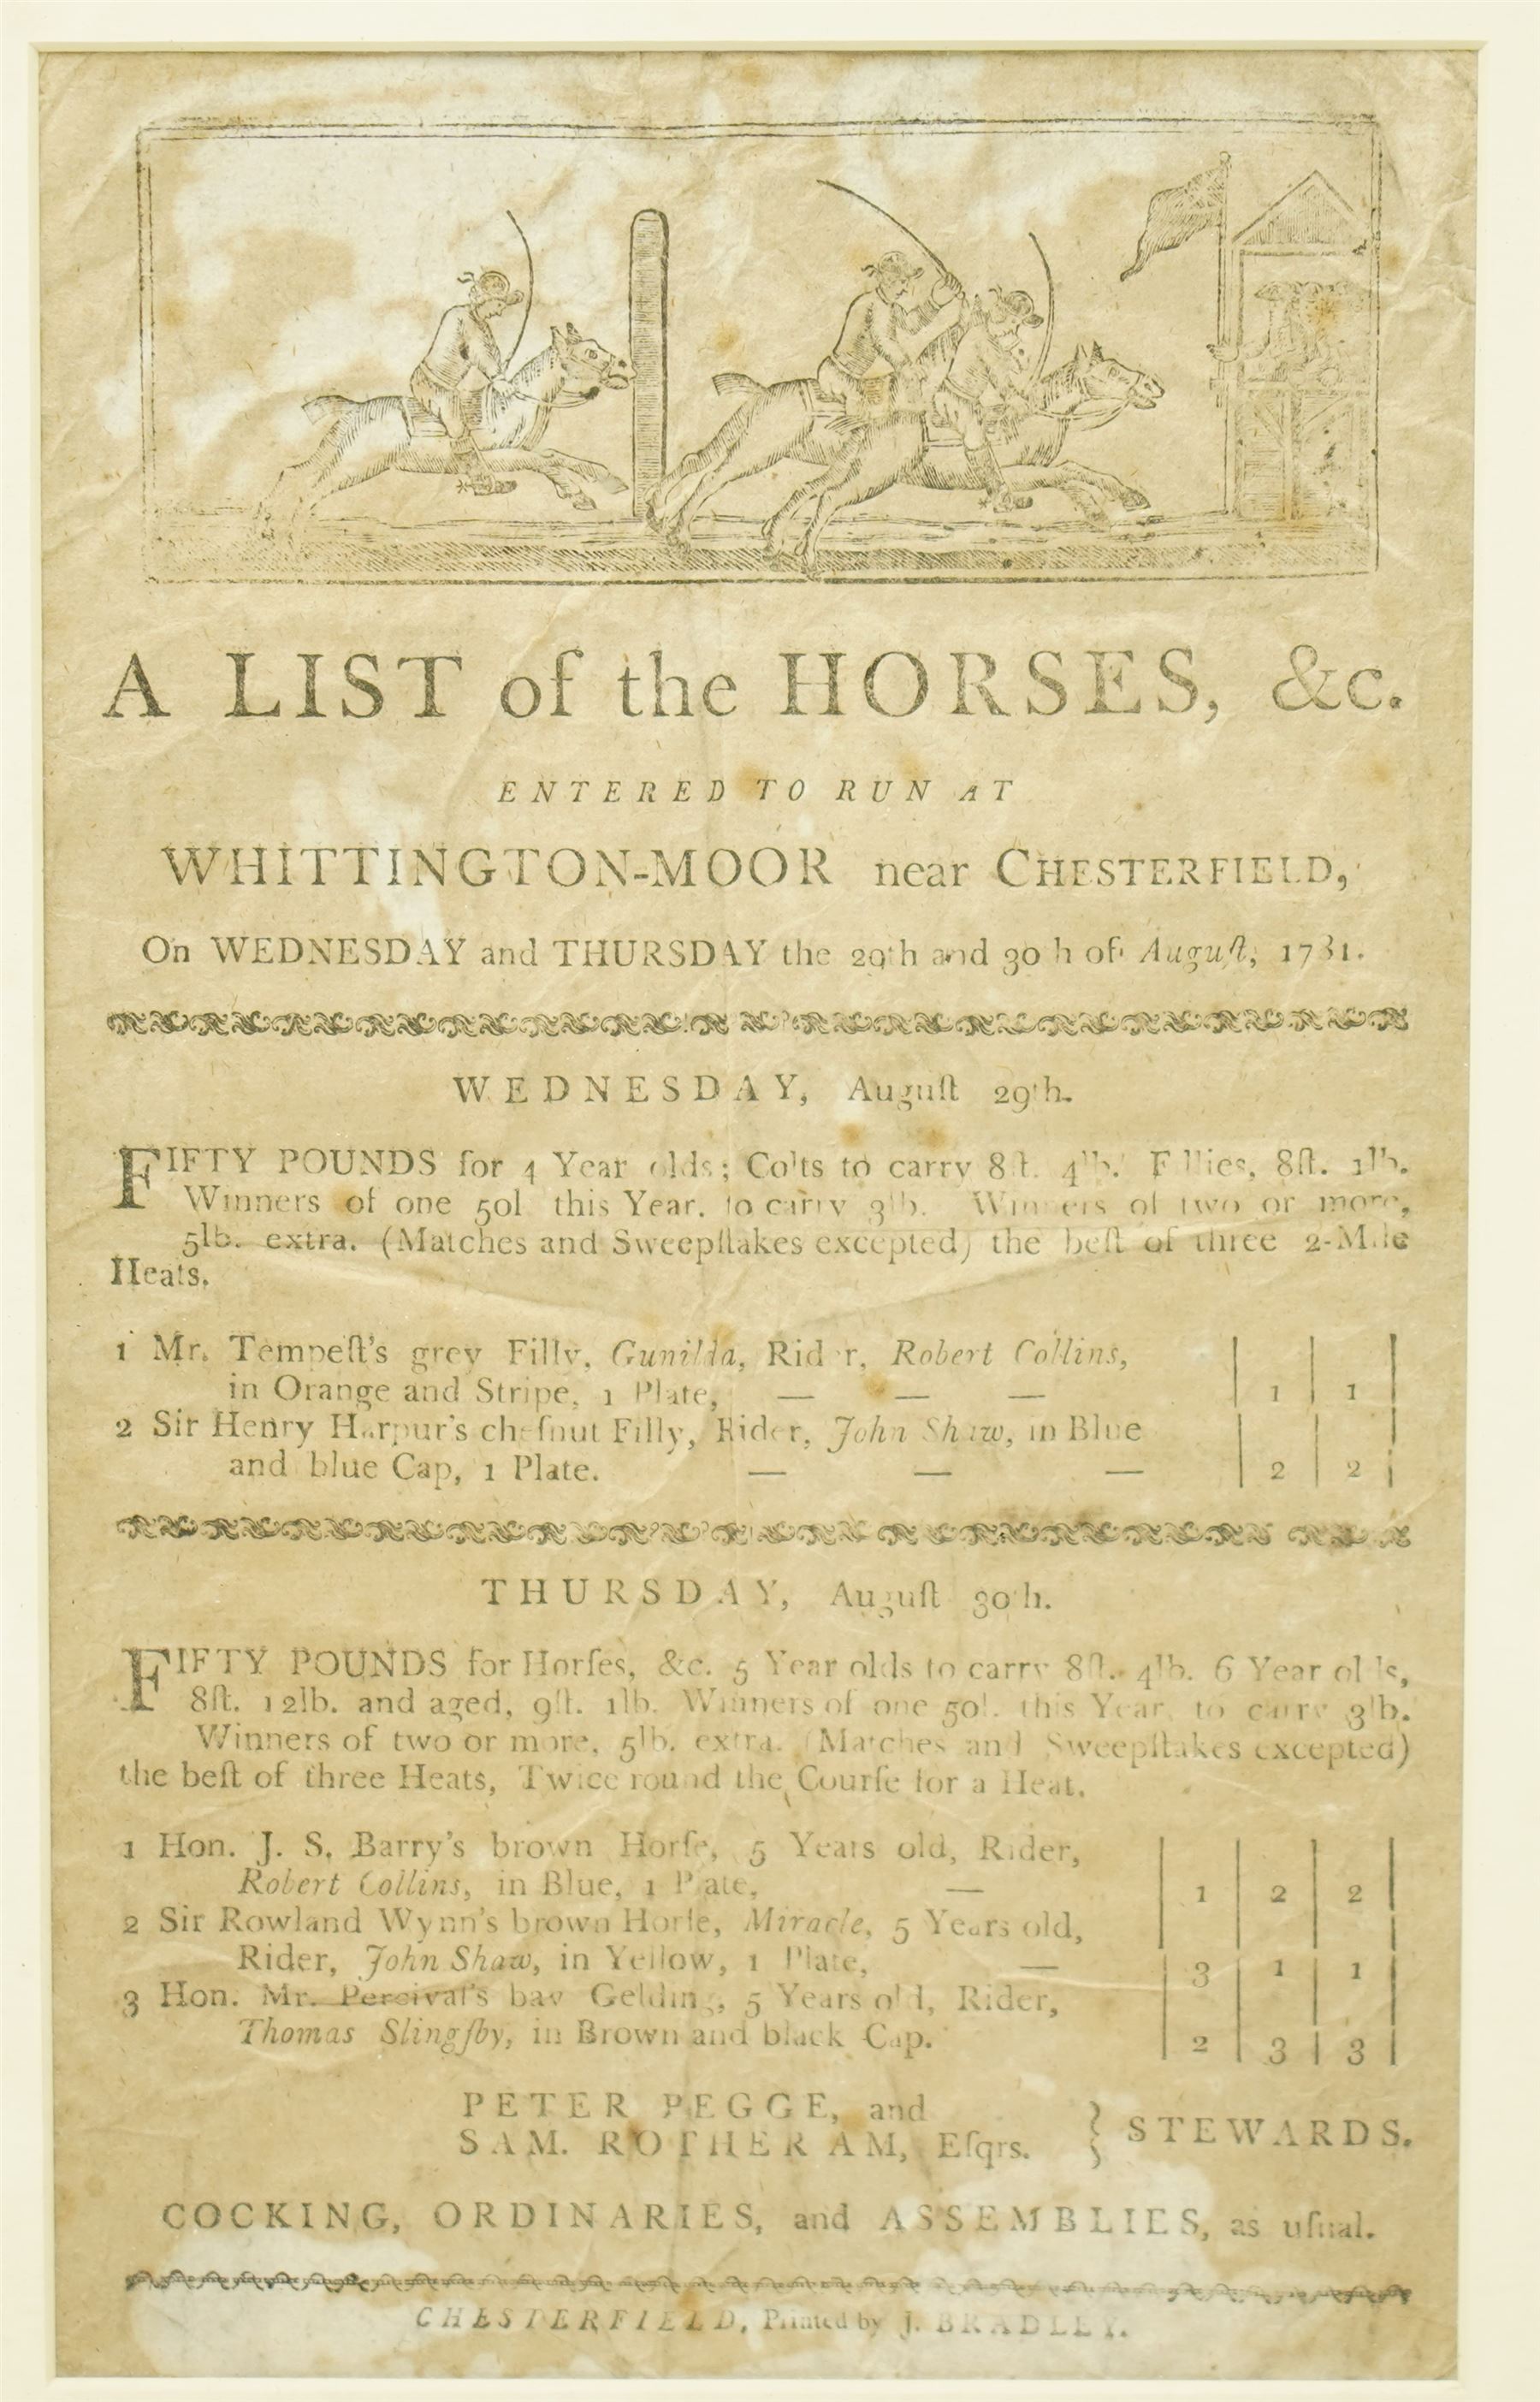 A LIST of the HORSES, &c.
ENTERED TO RUN AT
WHITTINGTON-MOOR near CHESTERFIELD,
On WEDNESDAY and THURSDAY the 29th and 30th of Auguſt, 1781.
WEDNESDAY, Auguſt 29th.
FIFTY POUNDS for 4 Year olds; Colts to carry 8ſt. 4lb. Fillies, 8ſt. 1lb.
Winners of one 50l. this Year, to carry 3lb. Winners of two or more,
5lb. extra. (Matches and Sweepſtakes excepted) the beſt of three 2-Mile
Heats.
1 Mr. Tempeſt's grey Filly, Gunilda, Rider, Robert Collins,
in Orange and Stripe, 1 Plate, — — — 1 1
2 Sir Henry Harpur's cheſnut Filly, Rider, John Shaw, in Blue
and blue Cap, 1 Plate. — — — 2 2
THURSDAY, Auguſt 30th.
FIFTY POUNDS for Horſes, &c. 5 Year olds to carry 8ſt. 4lb. 6 Year olds,
8ſt. 12lb. and aged, 9ſt. 1lb. Winners of one 50l. this Year, to carry 3lb.
Winners of two or more, 5lb. extra. (Matches and Sweepſtakes excepted)
the beſt of three Heats, Twice round the Courſe for a Heat.
1 Hon. J. S. Barry's brown Horſe, 5 Years old, Rider,
Robert Collins, in Blue, 1 Plate. — 1 2 2
2 Sir Rowland Wynn's brown Horſe, Miracle, 5 Years old,
Rider, John Shaw, in Yellow, 1 Plate, — 3 1 1
3 Hon. Mr. Percival's bay Gelding, 5 Years old, Rider,
Thomas Slingſby, in Brown and black Cap. 2 3 3
PETER PEGGE, and
SAM. ROTHERAM, Eſqrs. } STEWARDS.
COCKING, ORDINARIES, and ASSEMBLIES, as uſual.
CHESTERFIELD, Printed by J. BRADLEY.